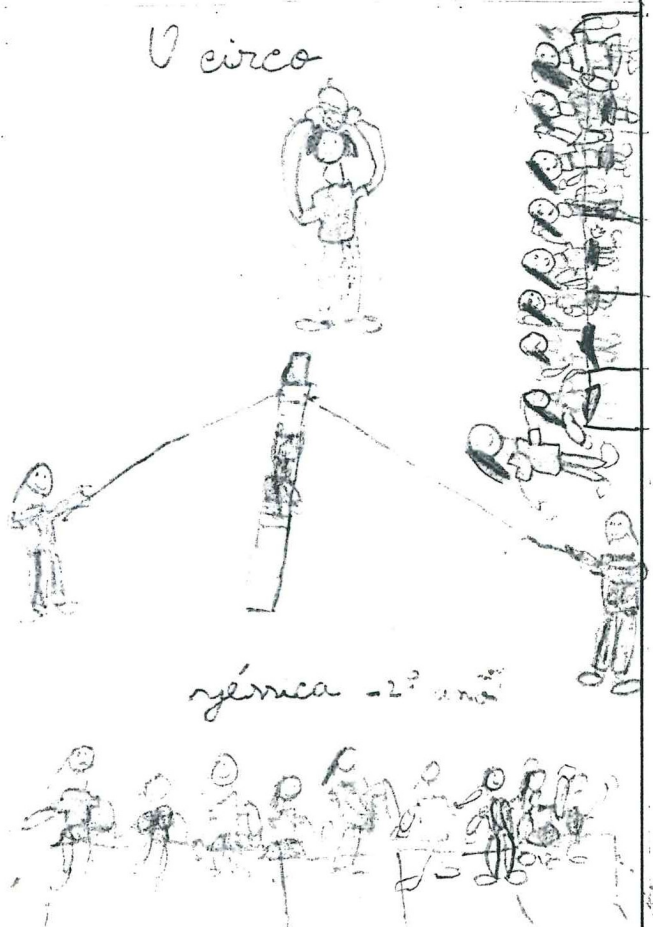 O circo
jéssica - 2º ano